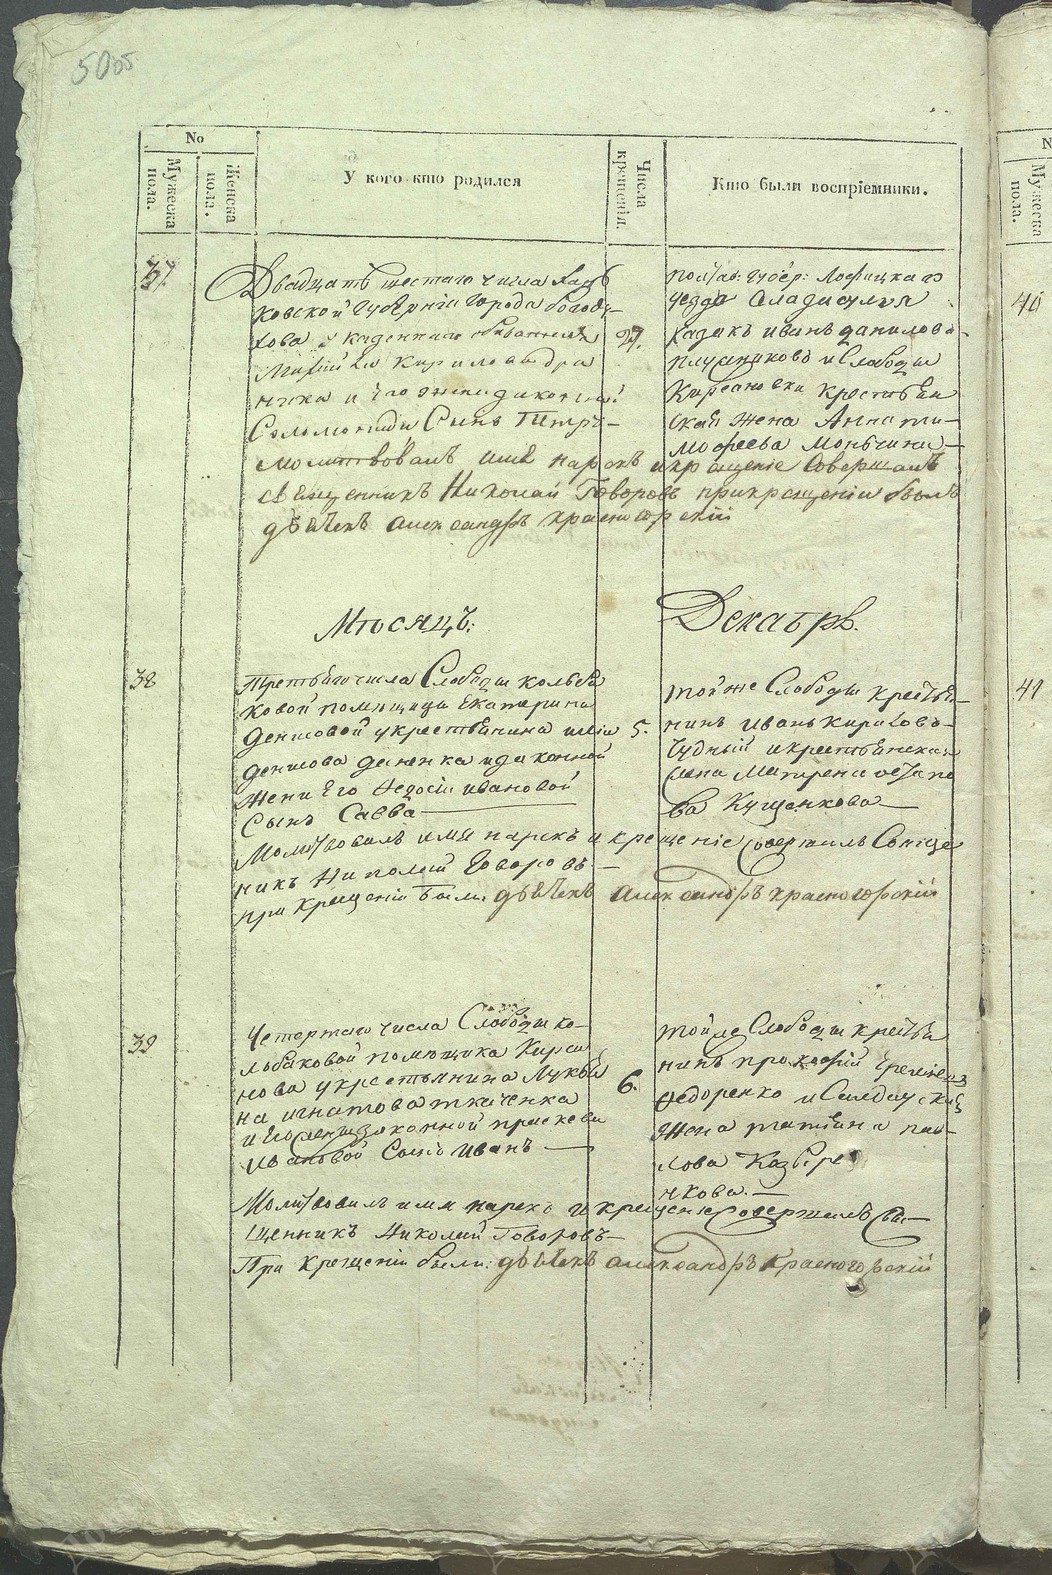 5005
No
Мужеска пола.
Женска пола.
У кого кто родился
Числа крещенія.
Кто были воспріемники.
37.
Двадцать шестаго числа Харь
ковской Губерніи Города Богоду-
хова
Кирила
ника и его жены законной
Соломониди Сынъ Петръ-
27.
Полтав: Губер: Лохвицкаго
уезда
Казакъ Иванъ Данилова-
и Слободы
Кирсановки крестьян
ская жена Анна Ти-
мофеева
Молитвовалъ имя нарекъ и крещеніе Совершалъ
Священникъ Николай Говоровъ при крещеніи былъ
дьячекъ Александръ Красногорскій
Мѣсяцъ:
Декабрь.
38
Третьяго числа Слободы Кольба
ковой помещицы Екатерины
Денисовой у крестьянина
Денисова и законной
жены Его Федосіи Ивановой
Сынъ Савва
5.
Той же Слободы крестья-
нинъ Иванъ Кириловъ-
Чудный и крестьянская
жена Матрена Остапо
ва Кущенкова
Молитвовалъ имя нарекъ и крещеніе Совершалъ Священ
никъ Николай Говоровъ-
при Крещеніи были: дьячекъ Александръ Красногорскій
39
Четвертаго числа Слободы Ко-
льбаковой помещика Кирса
нова у крестьянина Лукья
на Игнатова Ткаченка
и Его жены законной Прасковьи
Ивановой Сынъ Иванъ
6.
Той же Слободы крестья
нинъ Прокофій
Федоренко и Салдатская
жена Татьяна Пав-
лова Козыре
нкова.
Молитвовалъ имя нарекъ и крещеніе Совершалъ Свя-
щенникъ Николай Говоровъ-
При Крещеніи были: дьячекъ Александръ Красногорскій
40
41